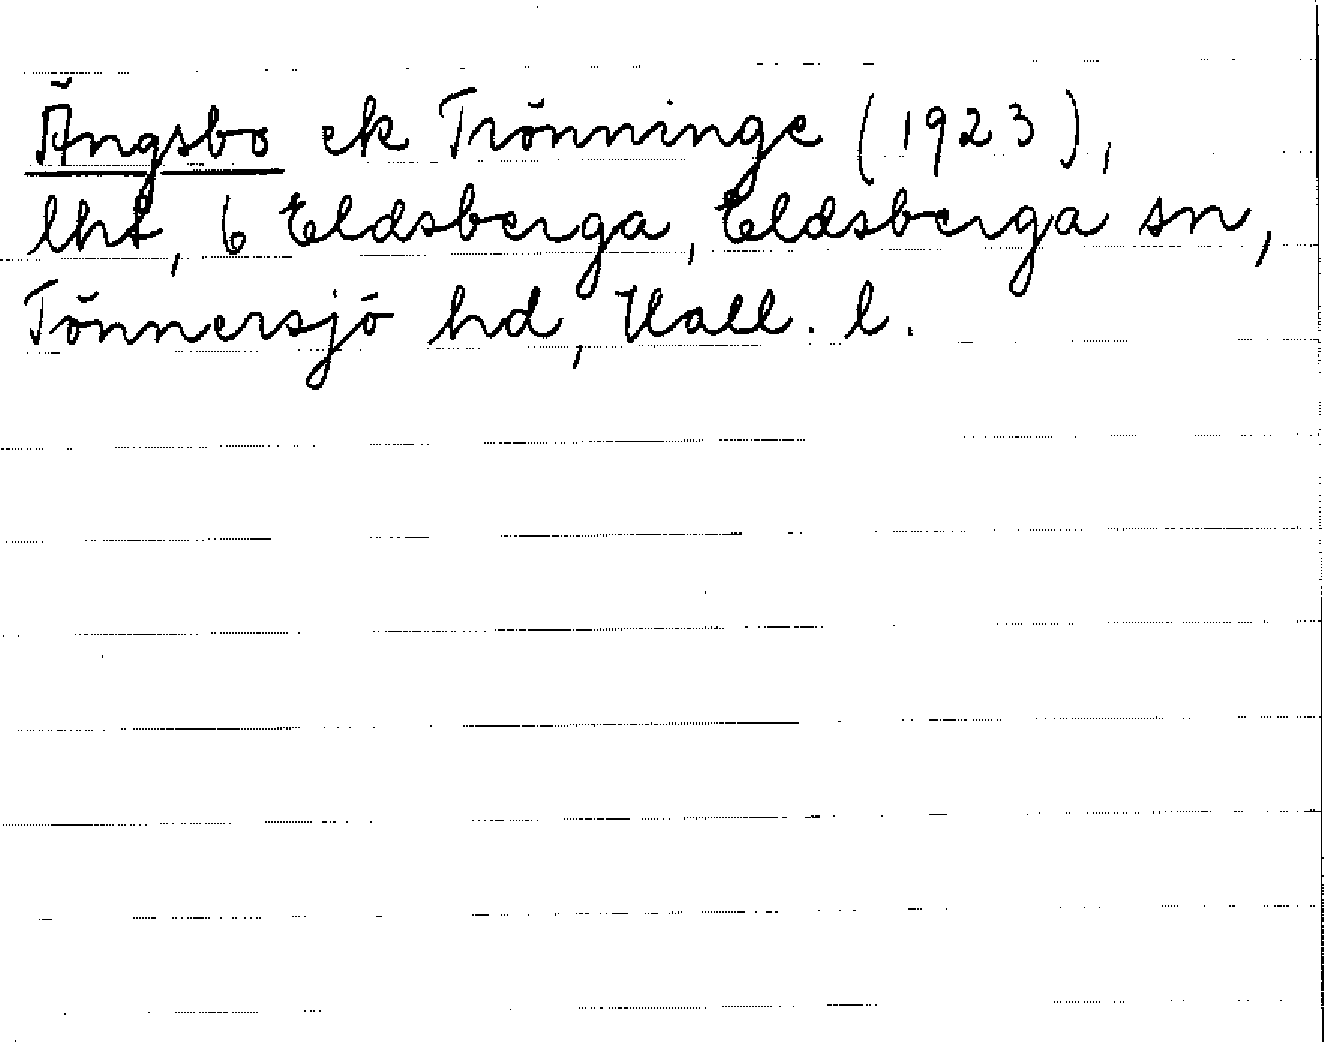 Ängsbo ek Trönninge (1923),
lht, 6 Eldsberga, Eldsberga sn,
Tönnersjö hd, Hall. l.